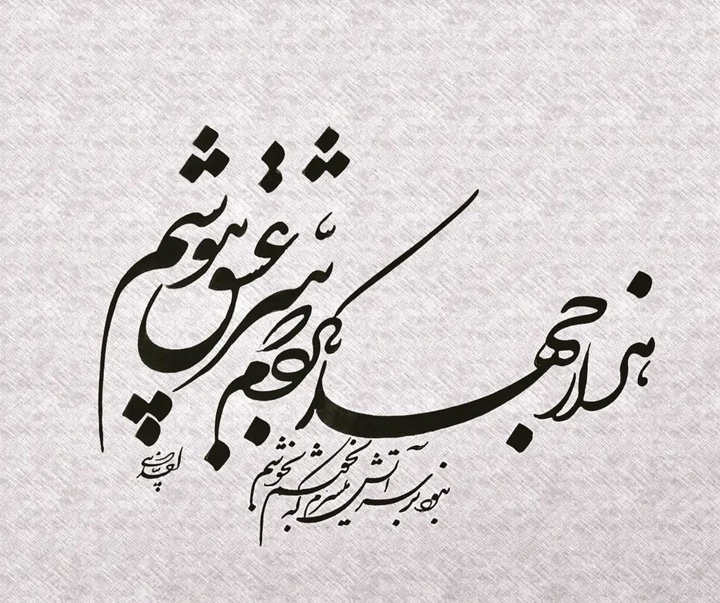 هزار جهد بکردم که سرّ عشق بپوشم
نبود بر سر آتش میسرم که نجوشم